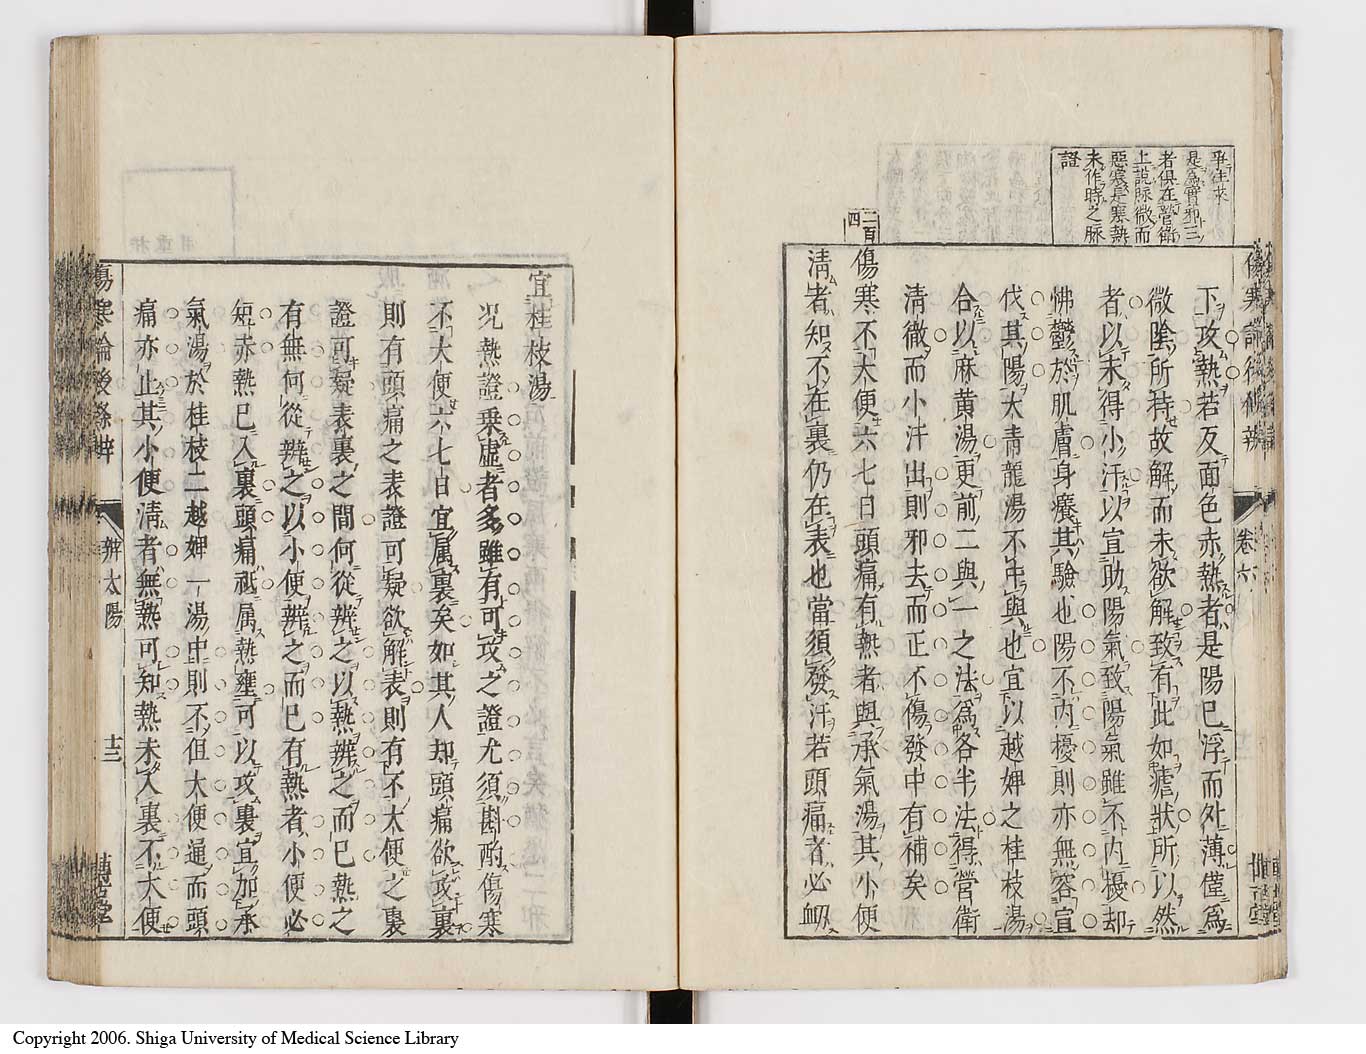 爭往來
是爲實邪三
者俱在營衛
上說脉微而
惡寒是寒熱
未作時之脉
證
二百四
下攻熱若反面色赤熱者是陽已浮而外薄僅爲
微陰所持故解而未欲解致有此如瘧狀所以然
者以未得小汗以宣助陽氣致陽氣雖不内擾却
怫鬱於肌膚身癢其驗也陽不内擾則亦無容宣
伐其陽大青龍湯不中與也宜以越婢之桂枝湯
合以麻黄湯更前二與一之法爲各半法得營衛
清徹而小汗出則邪去而正不傷發中有補矣
傷寒不大便六七日頭痛有熱者與承氣湯其小便
清者知不在裏仍在表也當須發汗若頭痛者必衂
卷六
宜桂枝湯
况熱證乗虚者多雖有可攻之證尤須斟酌傷寒
不大便六七日宜属裏矣如其人却頭痛欲攻裏
則有頭痛之表證可疑欲解表則有不大便之裏
證可疑表裏之間何從辨之以熱辨之而已熱之
有無何從辨之以小便辨之而已有熱者小便必
短赤熱已入裏頭痛祗属熱壅可以攻裏宜加承
氣湯於桂枝二越婢一湯中則不但大便通而頭
痛亦止其小便清者無熱可知熱未入裏不大便
傷寒論後條辨
辨太陽
十三